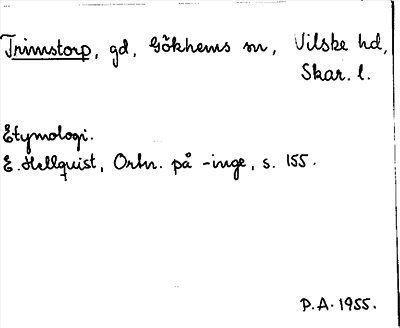 Trimstorp, gd, Gökhems sn, Vilske hd,
Skar. l.
Etymologi.
E. Hellquist, Ortn. på -inge, s. 155.
P.A. 1955.